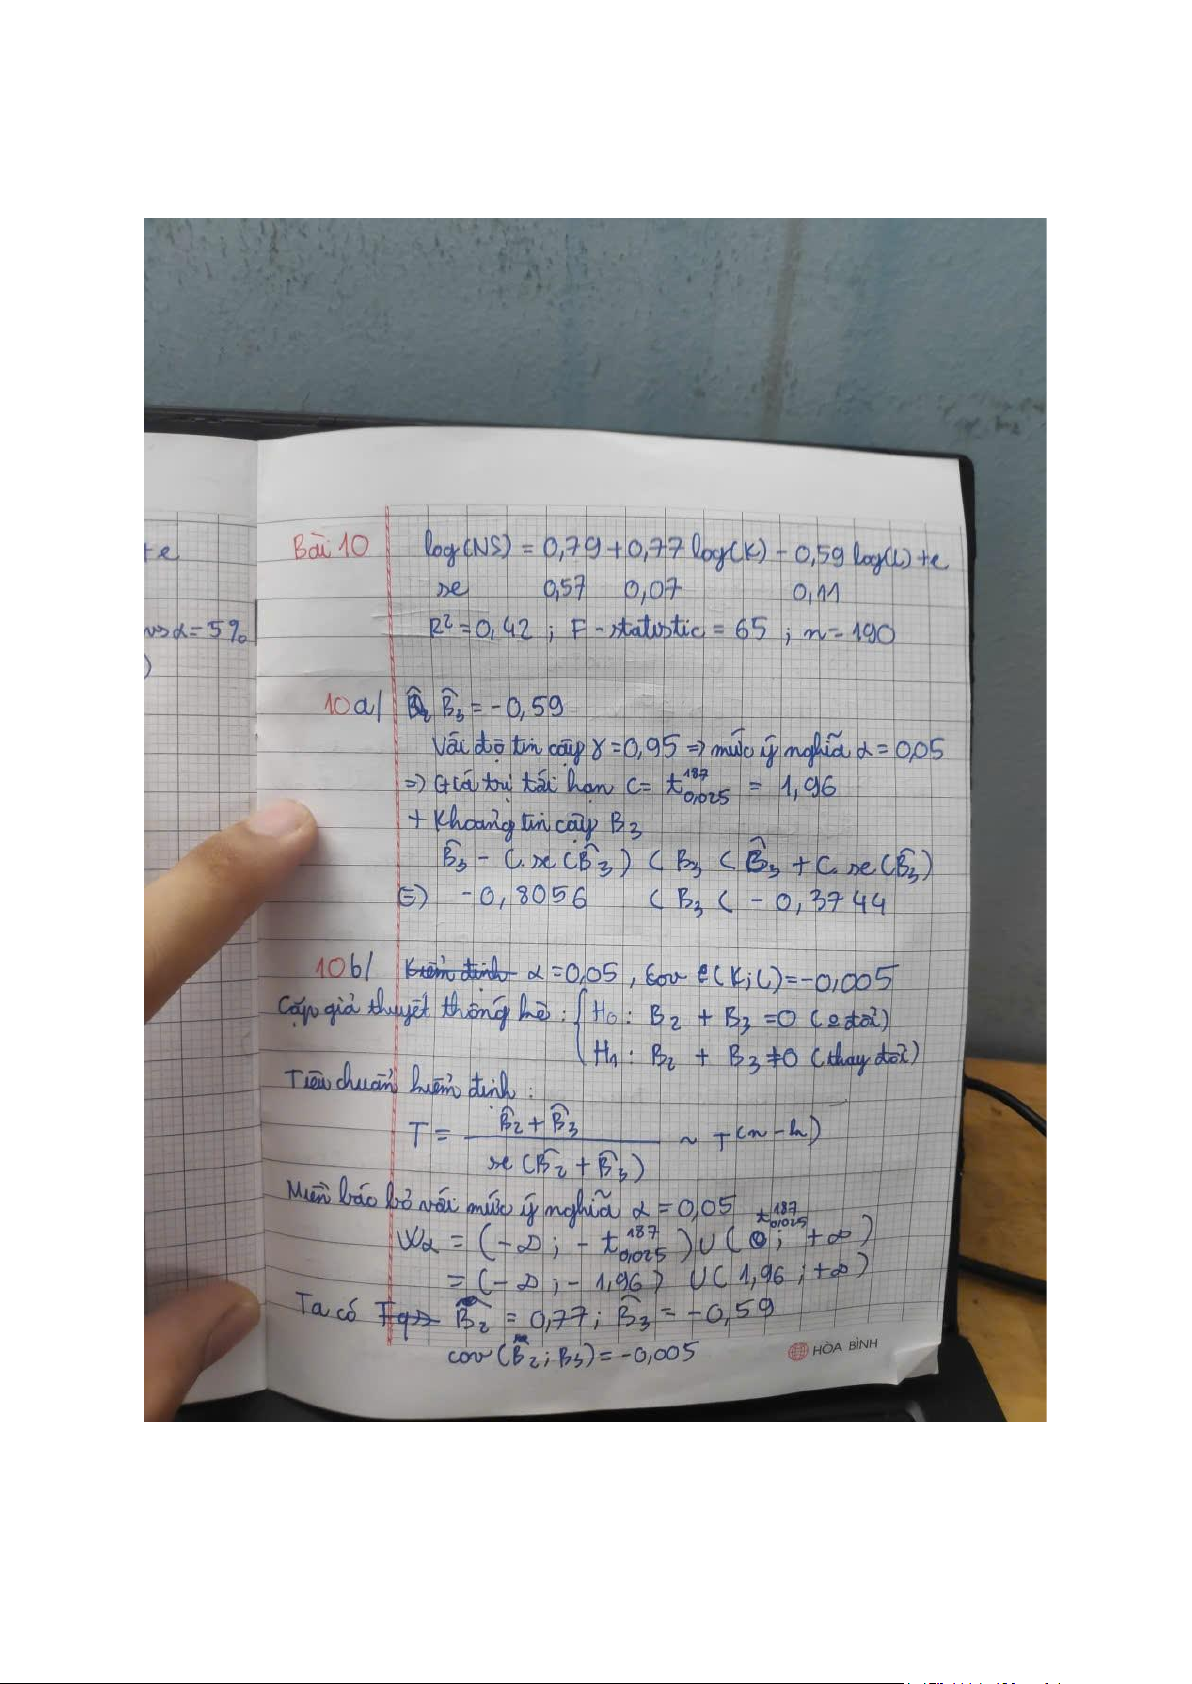 +e
vs α = 5%
)
Bài 10 log(NS) = 0,79 + 0,77 log(K) - 0,59 log(L) + e
se 0,57 0,07 0,11
R² = 0,42 ; F - statistic = 65 ; n = 190
10a/ B̂₃ = -0,59
Với độ tin cậy γ = 0,95 => mức ý nghĩa α = 0,05
=> Giá trị tới hạn C = t¹⁸⁷₀,₀₂₅ = 1,96
+ Khoảng tin cậy B₃
B̂₃ - C. se (B̂₃) < B₃ < B̂₃ + C. se (B̂₃)
(=) -0,8056 < B₃ < -0,3744
10b/ Kiểm định α = 0,05 , Cov (K; L) = -0,005
Cặp giả thuyết thống kê : { H₀ : B₂ + B₃ = 0 (o đổi)
H₁ : B₂ + B₃ ≠ 0 (thay đổi)
Tiêu chuẩn kiểm định :
T = (B̂₂ + B̂₃) / se (B̂₂ + B̂₃) ~ T(n-k)
Miền bác bỏ với mức ý nghĩa α = 0,05
Wα = (-∞ ; -t¹⁸⁷₀,₀₂₅) ∪ (t¹⁸⁷₀,₀₂₅ ; +∞)
= (-∞ ; -1,96) ∪ (1,96 ; +∞)
Ta có B̂₂ = 0,77 ; B̂₃ = -0,59
cov (B̂₂ ; B₃) = -0,005
HÒA BÌNH